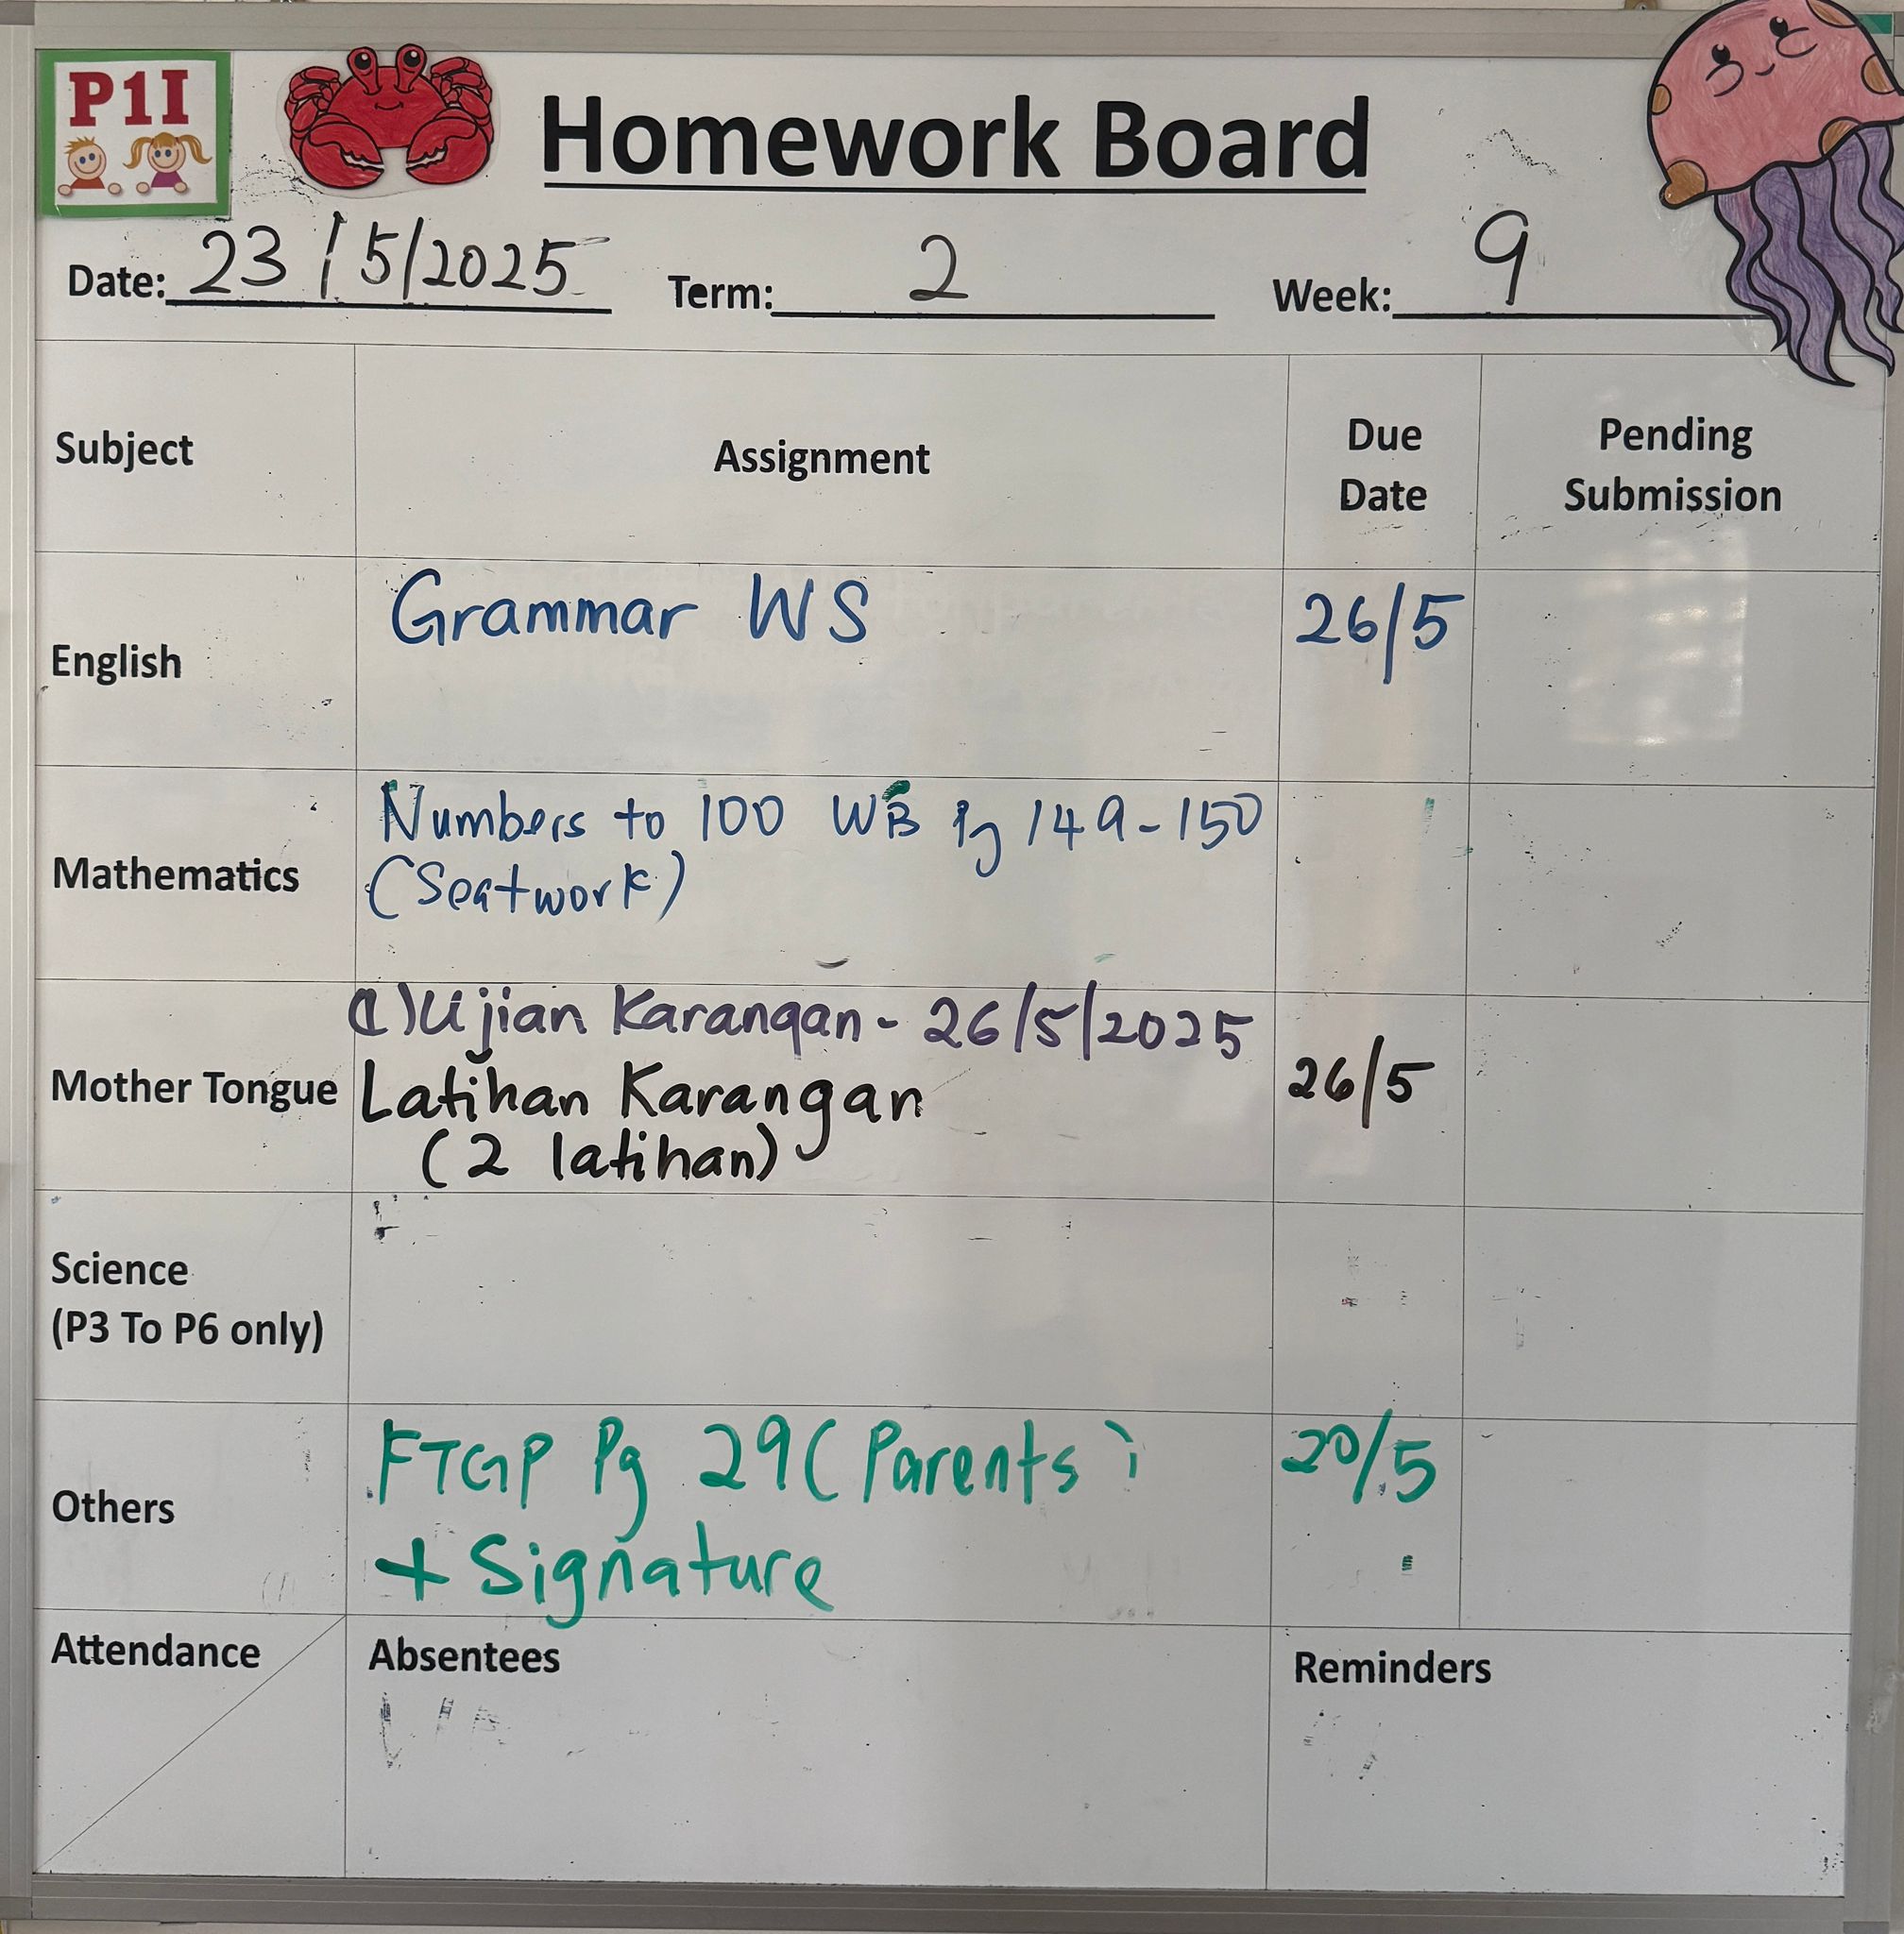 P1I
Homework Board
Date: 23/5/2025 Term: 2 Week: 9
Subject Assignment Due Date Pending Submission
English Grammar WS 26/5
Mathematics Numbers to 100 WB Pg 149-150
(Seatwork)
(1) Ujian Karangan - 26/5/2025
Mother Tongue Latihan Karangan 26/5
(2 latihan)
Science
(P3 To P6 only)
FTGP Pg 29 (Parents) 20/5
Others + Signature
Attendance Absentees Reminders